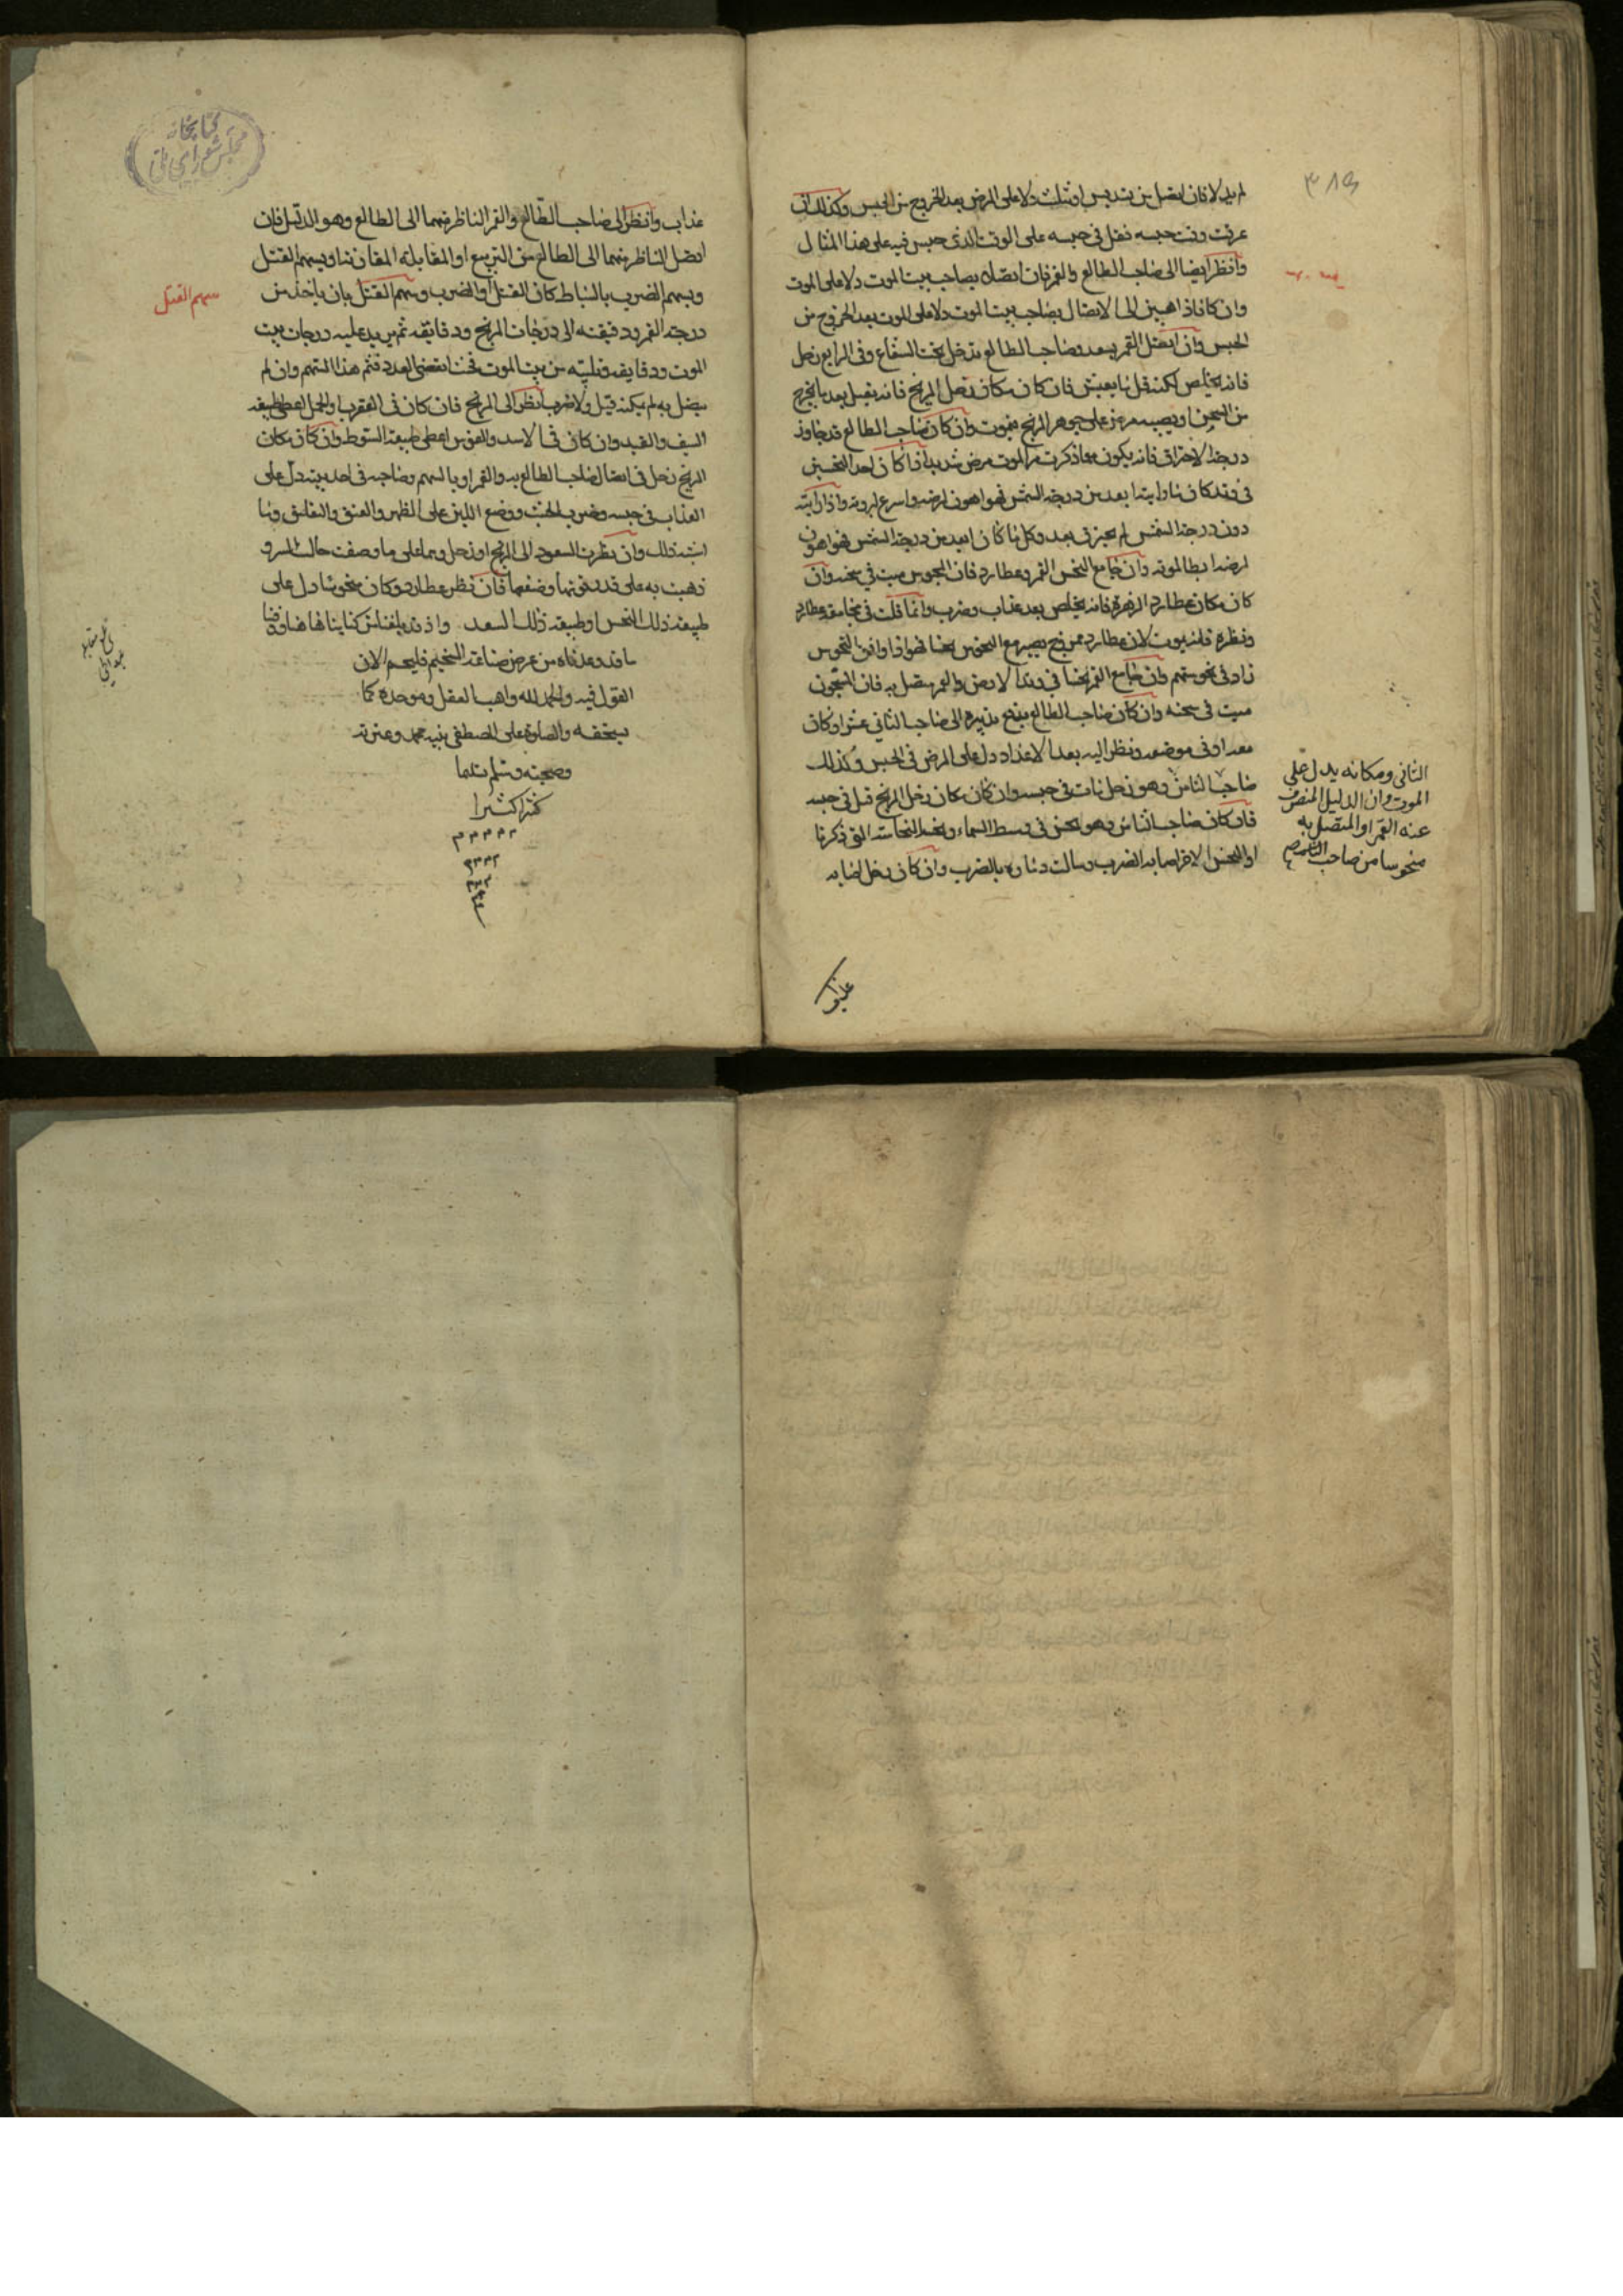 ٣٨٩
لم يدلا فان اتصل من تسديس او تثليث دلا على المرض بعد الخروج من الحبس وكذلك ان
عرفت وقت حبسه فقل في حبسه على الوقت الذى حبس فيه على هذا المثال
وانظر ايضا الى صاحب الطالع والقمر فان اتصلا بصاحب بيت الموت دلا على الموت
وان كانا ذاهبين الى الاتصال بصاحب بيت الموت دلا على الموت بعد الخروج من
الحبس وان اتصل القمر بسعد وصاحب الطالع قد دخل تحت الشعاع وفى الرابع زحل
فانه يخلص لكنه قل ما يعيش فان كان مكان زحل المريخ فانه يقتل بعد ما يخرج
من السجن او يصيبه مرض على جوهر المريخ فيموت وان كان صاحب الطالع قد جاوز
درجة الاحتراق فانه يكون مما ذكرت من الموت مرض شديد فاذا كان احد النحسين
في وتد كان ما وابتدا بعد من درجة الشمس فهو اهون لمرضه واسرع لبروه واذا رايته
دون درجة الشمس لم يجز فى بعد وكل ما كان ابعد من درجة الشمس فهو اهون
لمرضه ابطا لموته وان جامع النحس القمر وعطارد فان المحبوس ميت في سجنه وان
كان مكان عطارد الزهرة فانه يخلص بعد عذاب وضرب وانما قلت في مجامعة عطارد
ونظره فانه يموت لان عطارد ممزوج يصير مع النحوس نحسا فهو اذا وافق النحوس
زاد فى نحوستهم وان جامع القمر نحسا في وتد الارض والقمر متصل به فان المسجون
ميت فى سجنه وان كان صاحب الطالع يدفع تدبيره الى صاحب الثاني عشر او كان
معه او فى موضعه ونظر اليه بعد الاعداد دل على المرض فى الحبس وكذلك
صاحب الثامن وهو زحل مات فى حبسه وان كان مكان زحل المريخ قتل فى حبسه
فان كان صاحب الثامن وهو نحس في وسط السماء وبهذه النحاسة التى ذكرنا
او النحس الاخر اصابه الضرب وسالت دماوه بالضرب وان كان زحل اصابه
الثانى ومكانه يدل على
الموت وان الدليل المنصرف
عنه القمر او المتصل به
منحوسا من صاحب
عذاب وانظر الى صاحب الطالع والقمر الناظر منهما الى الطالع وهو الدليل فان
اتصل الناظر منهما الى الطالع من التربيع او المقابلة او المقارنة او بسهم القتل
وبسهم الضرب بالسياط كان القتل او الضرب وسهم القتل بان ياخذ من
درجة القمر ودقيقته الى درجات المريخ ودقايقه ثم يزيد عليه درجات بيت
الموت ودقايقه ويلقيه من بيت الموت فحيث انقضى العدد فثم هذا السهم وان لم
يتصل به لم يكن قتل ولا ضرب انظر الى المريخ فان كان فى العقرب او الحمل اعطى طبيعة
السيف والقيد وان كان فى الاسد والقوس اعطى طبيعة السوط وان كان مكان
المريخ زحل في اتصال صاحب الطالع به والقمر او بالسهم وصاحبه فى احد بيته دل على
العذاب فى حبسه وضرب الخشب ووضع اللبن على الظهر والعنق والتعليق وما
اشبه ذلك وان نظرت السعود الى المريخ او زحل وهما على ما وصفت حالت الشر و
ذهبت به على قدر قوتها وضعفها فان نظر عطارد وكان منحوسا دل على
طبيعة ذلك النحس او طبيعة ذلك السعد واذ قد بلغنا من كتابنا هذا
ما قد وعدناه من غرض صناعة التنجيم فليختم الان
القول فيه والحمد لله واهب العقل وموجده كما
يستحقه والصلوة على المصطفى نبيه محمد وعترته
وصحبه وسلم تسليما
كثيرا كثيرا
سهم القتل
كتابخانه
مجلس شوراى ملى